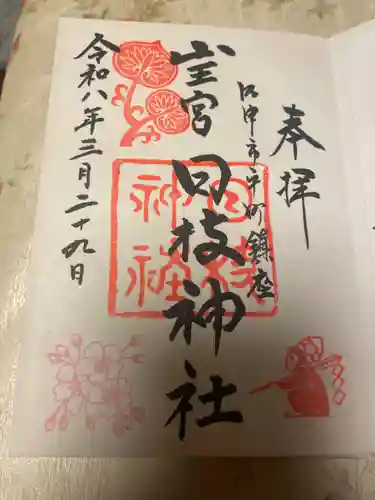 奉拝
田中市平町鎮座
山王宮 日枝神社
日枝神社
令和八年三月二十九日